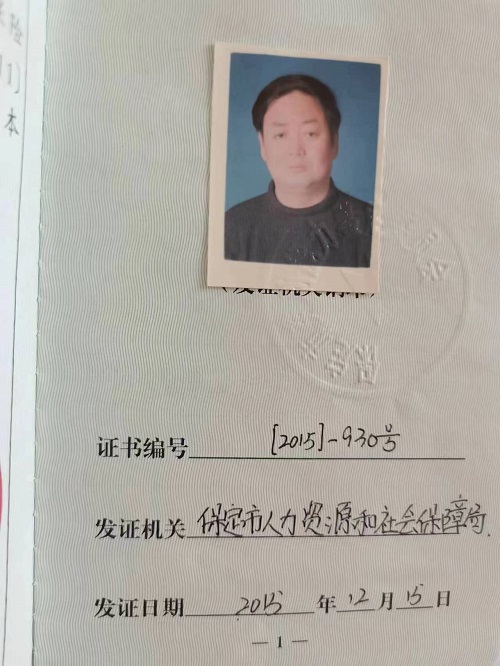 险
本
(发证机关钢印)
证书编号 [2015]-930号
发证机关 保定市人力资源和社会保障局
发证日期 2015 年 12 月 15 日
— 1 —